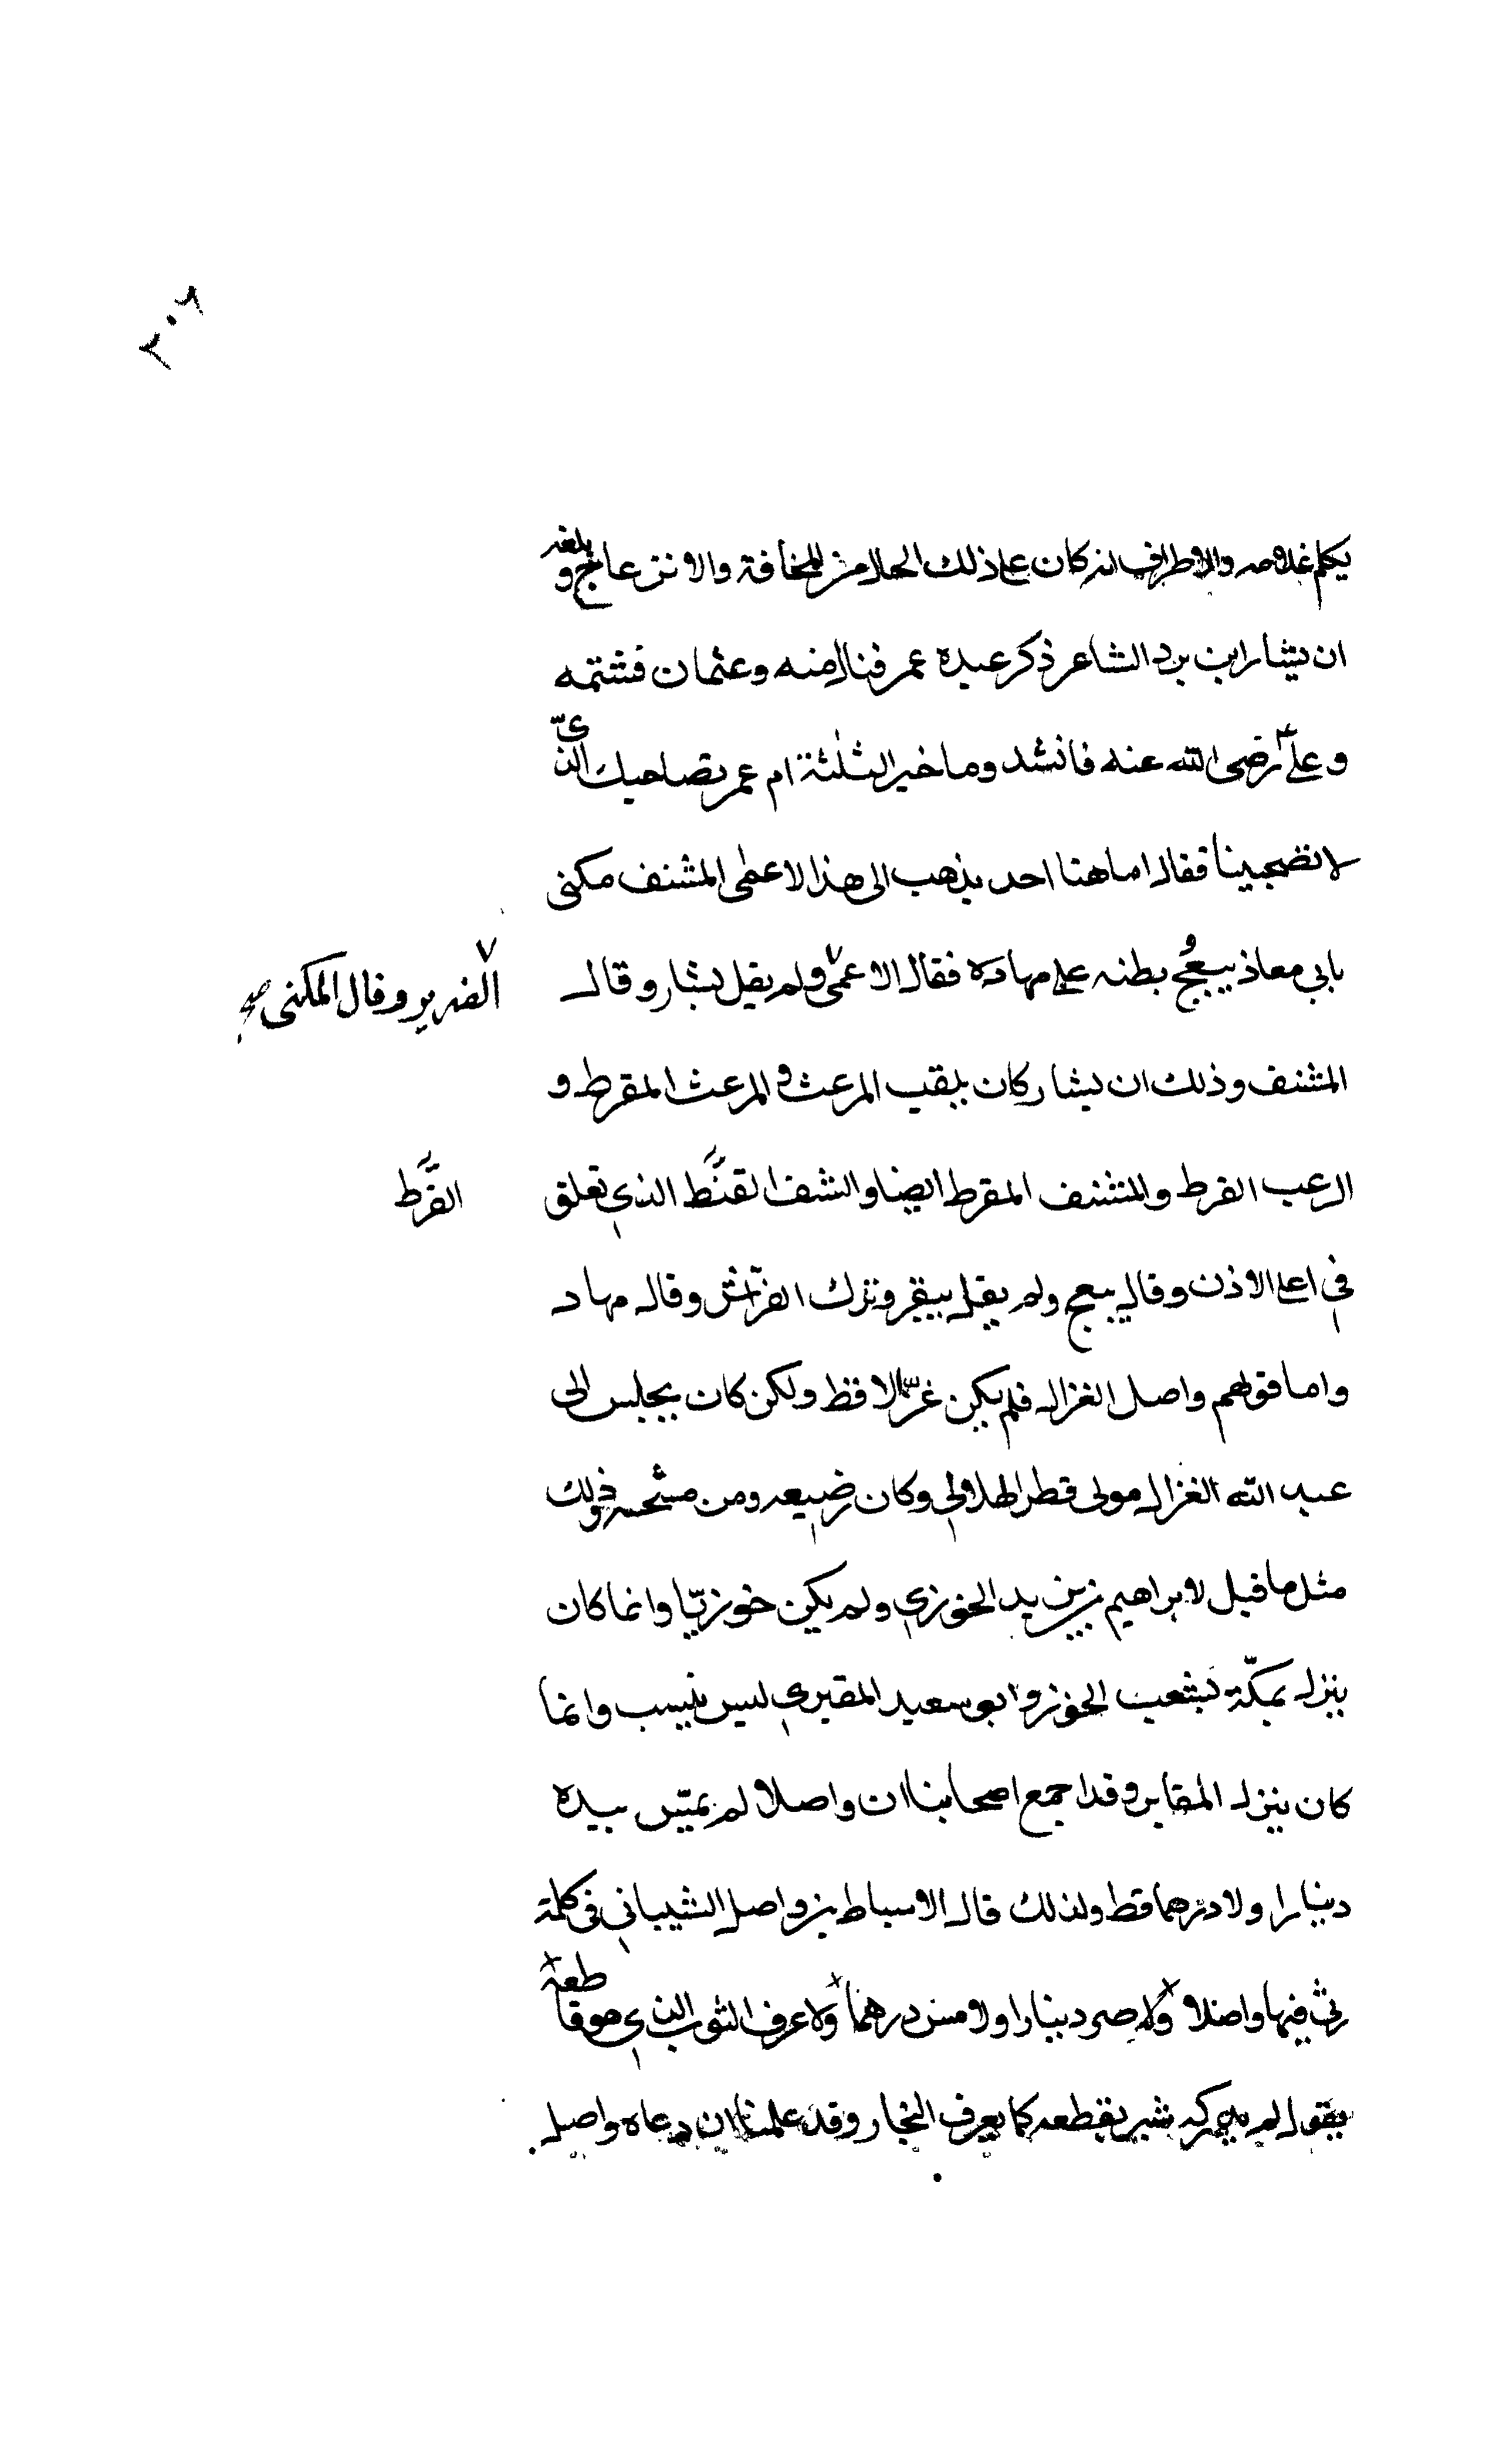 ٢٠٦
يكلم غلامه والاطراف انه كان على ذلك الحلام من المخافة والانتزعاج و بلغه
ان بشار ابن برد الشاعر ذكر عبده عمر فنال منه وعثمان فشتمه
وعليّ رضى الله عنه فانشد وما خير الثلثة ام عمر بصاحبك الذيّ
لا تصبحينا فقال اما هنا احد يذهب الى هذا الاعمى المشنف مكنى
بابي معاذ يبعج بطنه على مهاده فقال الاعمى ولم يقل بشار وقال
الضرير وقال المكنى صح
المشنف وذلك ان بشار كان يلقب المرعث و المرعث المقرط و
الرعب القرط والمشنف المقرط ايضا والشنف القنّط الذي تعلق
القرّط
في اعلى الاذن وقال يبعج ولم يقل يبقر وترك الفراش وقال مهاد
واما قولهم واصل الغزال فلم يكن غزّالا قط ولكن كان يجلس الى
عبد الله الغزال مولى قطر الهلالي وكان رضيعه ومن ذلك
مثل ما قيل لابراهيم بن يزيد الخوزي ولم يكن خوزيّا وانما كان
ينزل بمكّة بشعب الخوز وابو سعيد المقبري ليس بنسب وانما
كان ينزل المقابر وقد اجمع اصحابنا ان واصلا لم يمسّ بيده
دينارا ولا درهما قط ولذلك قال الاسباط بن واصل الشيباني في كلمة
رثى فيها واصلا ولا صر دينارا ولا مس درهما ولا عرف الثوب الذي هو قاطعه
يقول لم يدركه بشبر يقطعه كما يعرف التجار وقد علمنا ان دعاه واصل